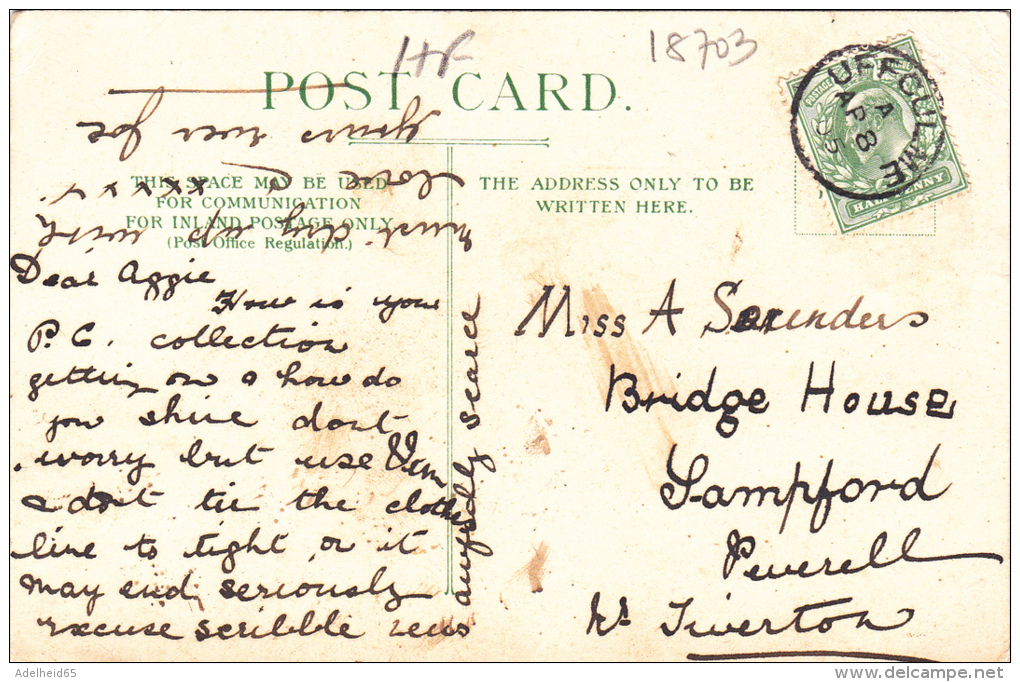 HF
18703
POST CARD.
THIS SPACE MAY BE USED
FOR COMMUNICATION
FOR INLAND POSTAGE ONLY.
(Post Office Regulation.)
THE ADDRESS ONLY TO BE
WRITTEN HERE.
UFFCULME
A
AP 8
05
HALFPENNY
Dear Aggie
How is your
P.C. collection
getting on & how do
you shine dont
worry but use Vim
& dont tie the clothes
line to tight or it
may end seriously
excuse scribble news
awfully scarce
must dry up with
love xxxxx
yours ever Joe
Miss A Saunders
Bridge House
Sampford
Peverell
Nr Tiverton
Adelheid65
www.delcampe.net